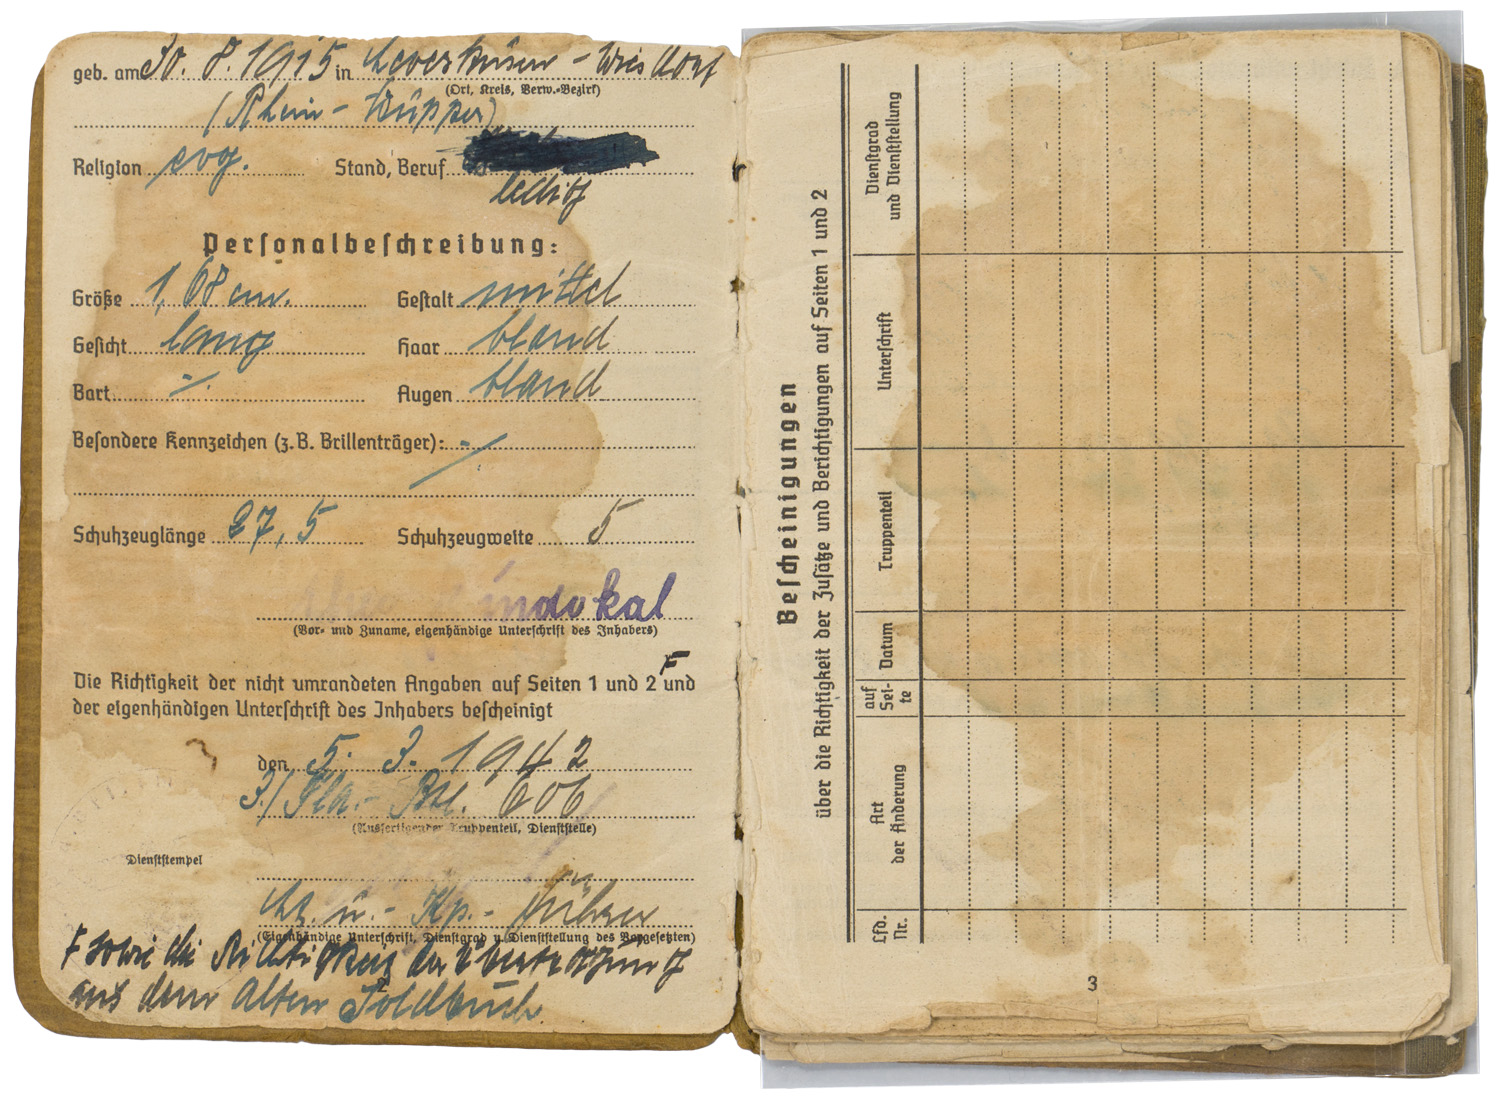 geb. am 30. 8. 1915 in Leverküsen - Wiesdorf
(Ort, Kreis, Verw.-Bezirk)
(Rhein - Wüpper)
Religion evg. Stand, Beruf
ledig
Personalbeschreibung:
Größe 1,68 cm. Gestalt mittel
Gesicht lang Haar bland
Bart -/. Augen bland
Besondere Kennzeichen (z. B. Brillenträger): -/
Schuhzeuglänge 27,5 Schuhzeugweite 5
(Vor- und Zuname, eigenhändige Unterschrift des Inhabers)
F
Die Richtigkeit der nicht umrandeten Angaben auf Seiten 1 und 2 und
der eigenhändigen Unterschrift des Inhabers bescheinigt
den 5. 3. 1942
3./ Fla.- Btl. 606
(Ausfertigender Truppenteil, Dienststelle)
Dienststempel
Lt. ü.- Kp.- Führer
(Eigenhändige Unterschrift, Dienstgrad u. Dienststellung des Vorgesetzten)
F sowie die Richtigkeit der Übertragüng
aus dem Alten Soldbuch
2
Bescheinigungen
über die Richtigkeit der Zusätze und Berichtigungen auf Seiten 1 und 2
Lfd. Nr.
Art der Änderung
auf Sei- te
Datum
Truppenteil
Unterschrift
Dienstgrad und Dienststellung
3